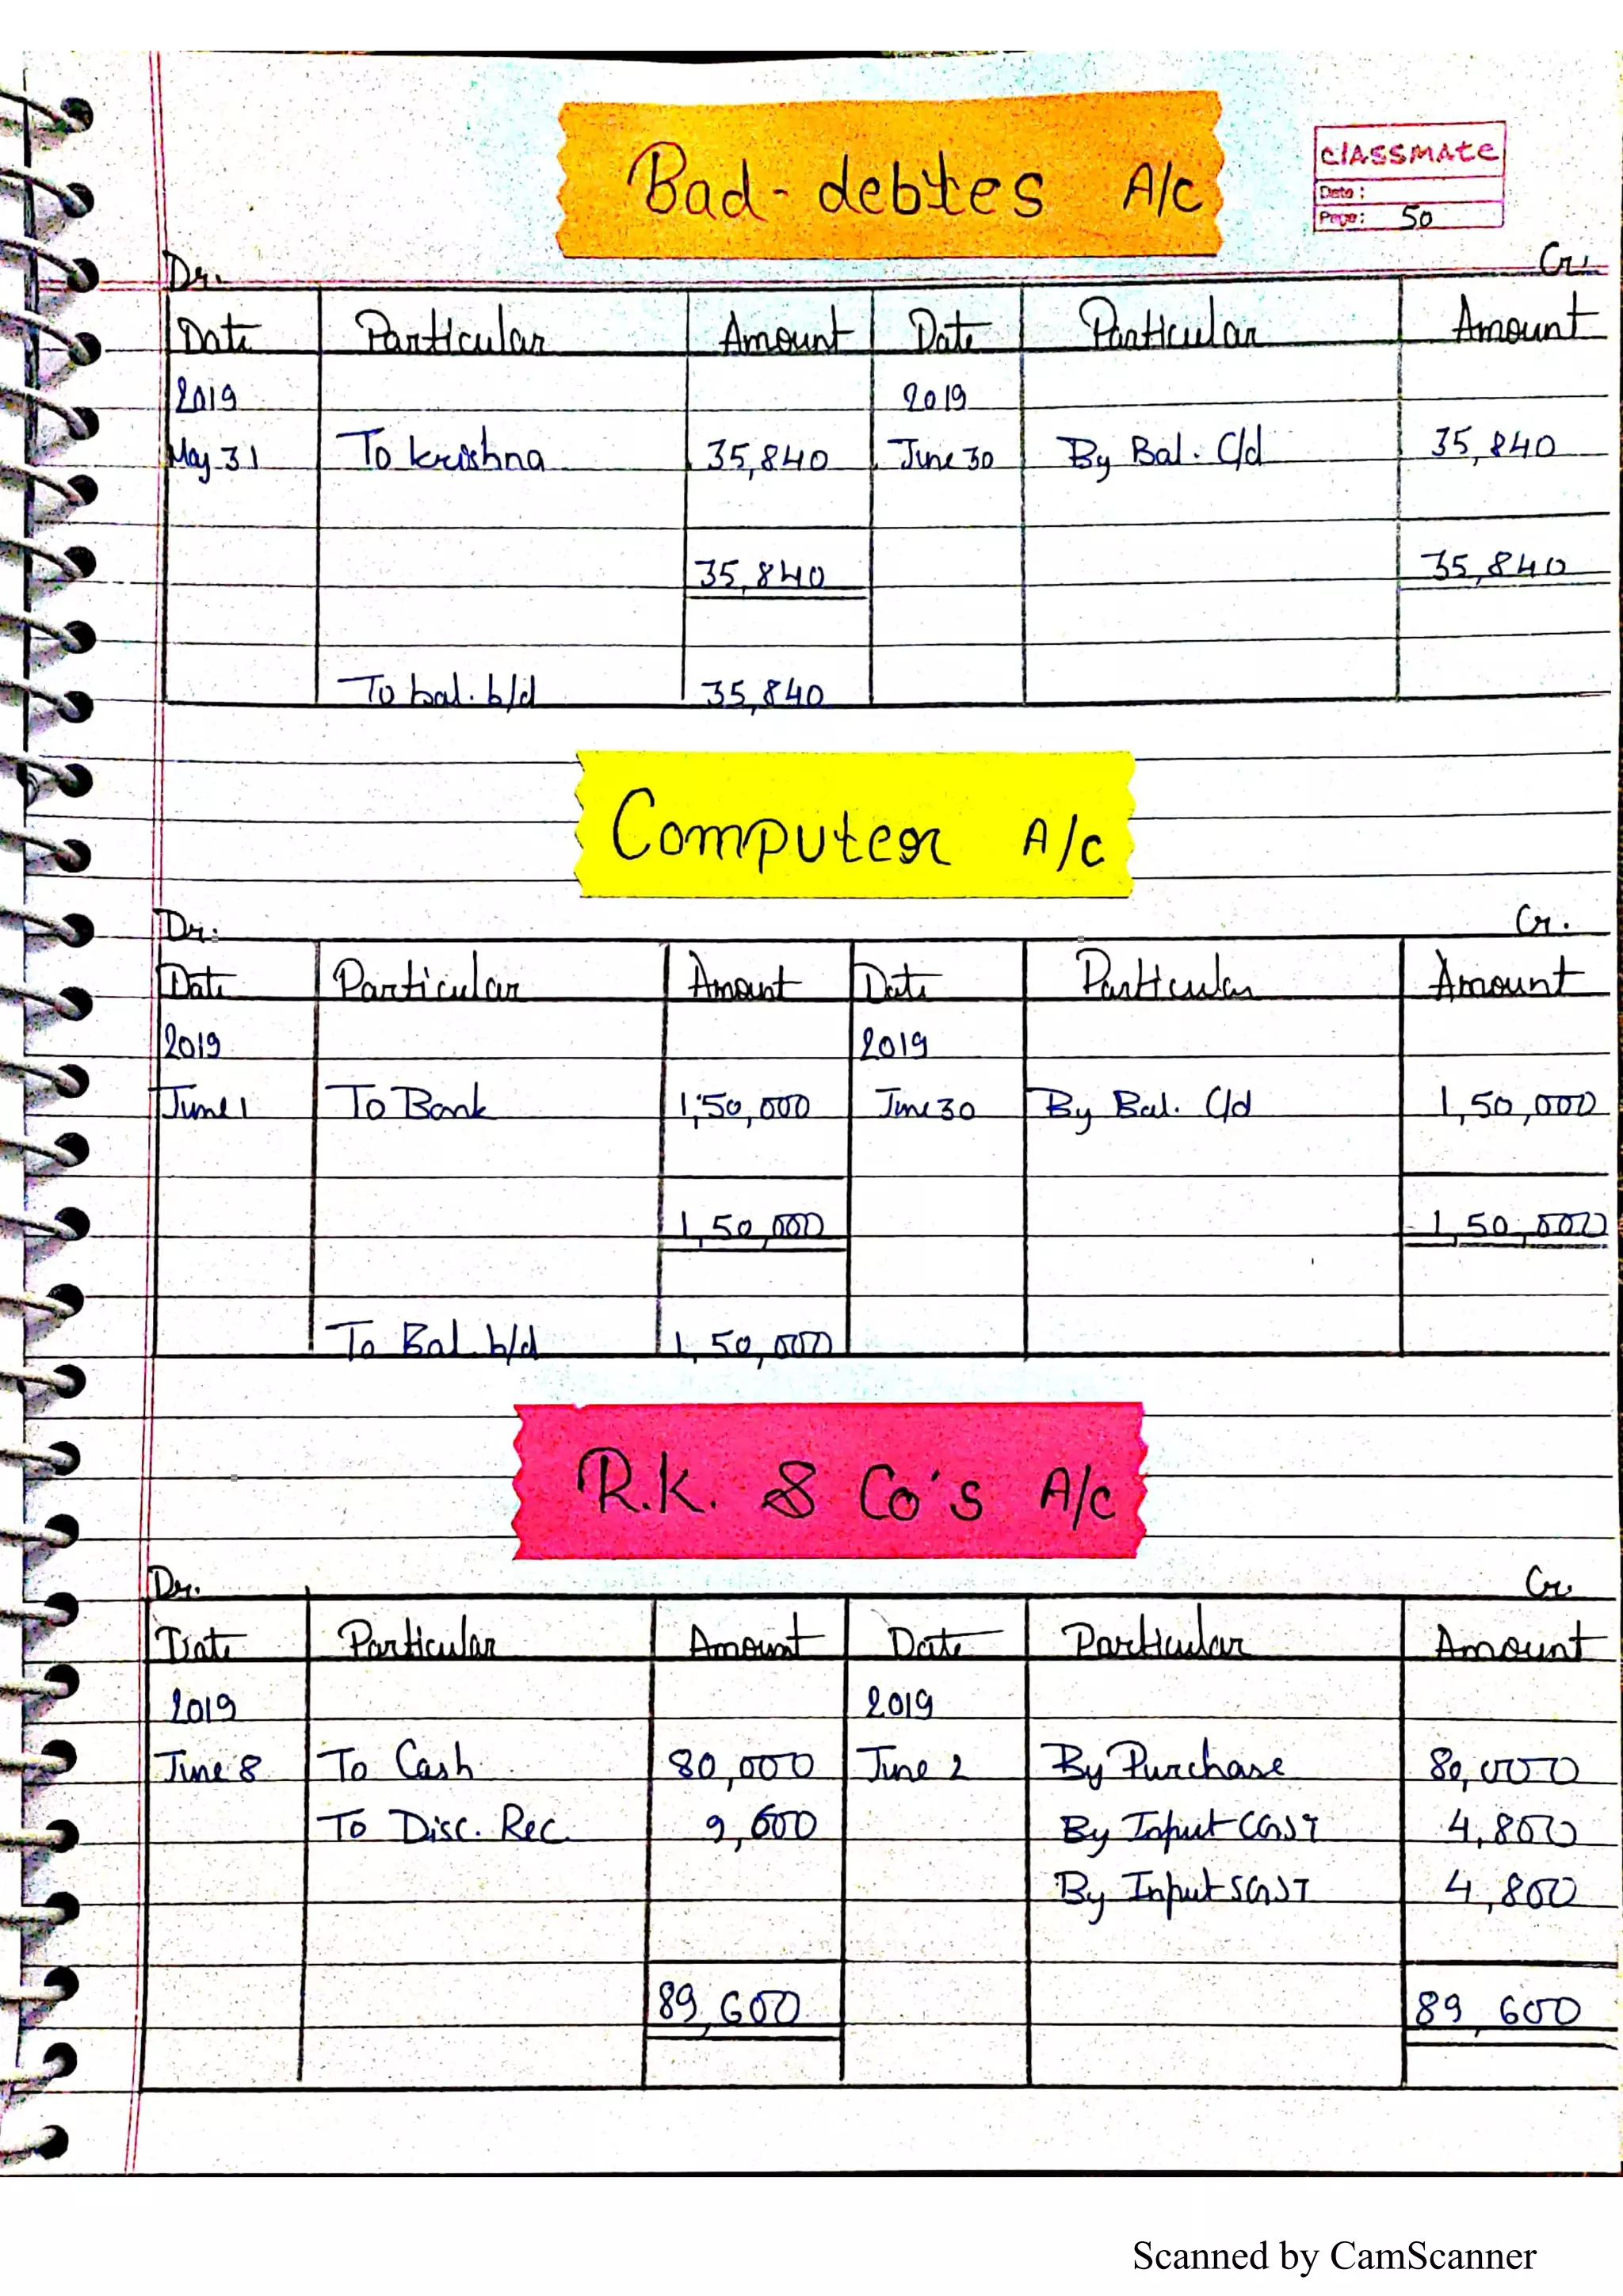 Bad-debtes A/c
classmate
Date:
Page: 50
Dr. Cr.
Date Particular Amount Date Particular Amount
2019 2019
May 31 To krishna 35,840 June 30 By Bal. C/d 35,840
35,840 35,840
To bal. b/d 35,840
Computer A/c
Dr. Cr.
Date Particular Amount Date Particular Amount
2019 2019
June 1 To Bank 1,50,000 June 30 By Bal. C/d 1,50,000
1,50,000 1,50,000
To Bal. b/d 1,50,000
R.K. & Co's A/c
Dr. Cr.
Date Particular Amount Date Particular Amount
2019 2019
June 8 To Cash 80,000 June 2 By Purchase 80,000
To Disc. Rec. 9,600 By Input CGST 4,800
By Input SGST 4,800
89,600 89,600
Scanned by CamScanner